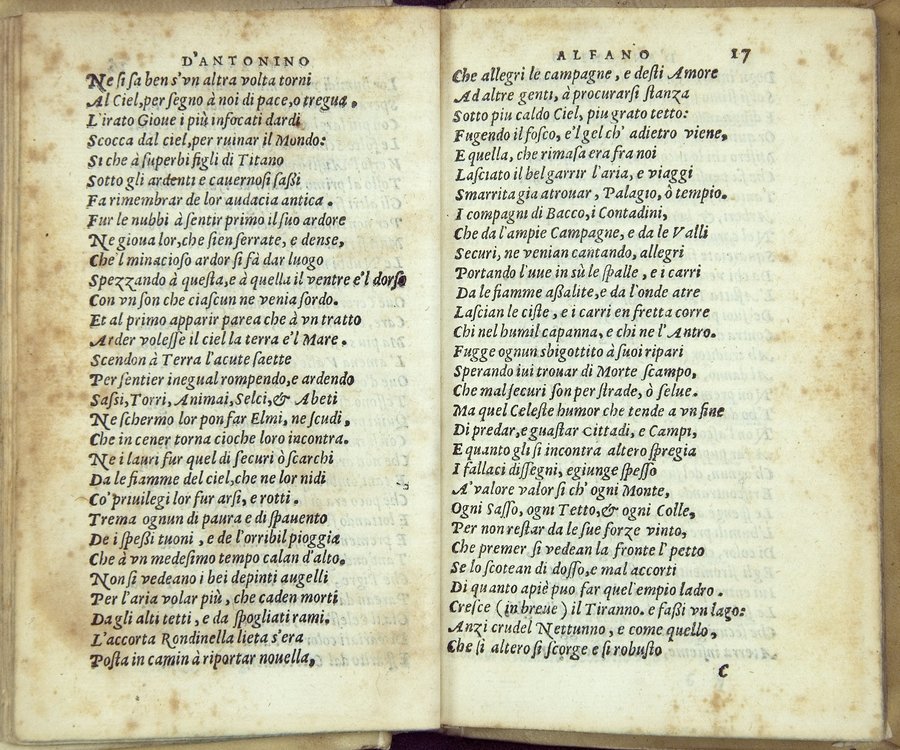 D'ANTONINO
Ne si sa ben s'vn altra volta torni
Al Ciel, per segno à noi di pace, o tregua.
L'irato Gioue i più infocati dardi
Scocca dal ciel, per ruinar il Mondo:
Si che à superbi figli di Titano
Sotto gli ardenti e cauernosi sassi
Fa rimembrar de lor audacia antica.
Fur le nubbi à sentir primo il suo ardore
Ne gioua lor, che sien serrate, e dense,
Che'l minacioso ardor si fà dar luogo
Spezzando à questa, e à quella il ventre e'l dorso
Con vn son che ciascun ne venia sordo.
Et al primo apparir parea che à vn tratto
Arder volesse il ciel la terra e'l Mare.
Scendon à Terra l'acute saette
Per sentier inegual rompendo, e ardendo
Sassi, Torri, Animai, Selci, & Abeti
Ne schermo lor pon far Elmi, ne scudi,
Che in cener torna cioche loro incontra.
Ne i lauri fur quel di securi ò scarchi
Da le fiamme del ciel, che ne lor nidi
Co' priuilegi lor fur arsi, e rotti.
Trema ognun di paura e di spauento
De i spessi tuoni, e de l'orribil pioggia
Che à vn medesimo tempo calan d'alto.
Non si vedeano i bei depinti augelli
Per l'aria volar più, che caden morti
Dagli alti tetti, e da spogliati rami.
L'accorta Rondinella lieta s'era
Posta in camin à riportar nouella,
ALFANO 17
Che allegri le campagne, e desti Amore
Ad altre genti, à procurarsi stanza
Sotto piu caldo Ciel, piu grato tetto:
Fugendo il fosco, e'l gel ch' adietro viene,
E quella, che rimasa era fra noi
Lasciato il bel garrir l'aria, e viaggi
Smarrita gia atrouar, Palagio, ò tempio.
I compagni di Bacco, i Contadini,
Che da l'ampie Campagne, e da le Valli
Securi, ne venian cantando, allegri
Portando l'uue in sù le spalle, e i carri
Da le fiamme assalite, e da l'onde atre
Lascian le ciste, e i carri en fretta corre
Chi nel humil capanna, e chi ne l'Antro.
Fugge ognun sbigottito à suoi ripari
Sperando iui trouar di Morte scampo,
Che mal securi son per strade, ò selue.
Ma quel Celeste humor che tende a vn fine
Di predar, e guastar Cittadi, e Campi,
E quanto gli si incontra altero spregia
I fallaci dissegni, e giunge spesso
A' valore valor si ch' ogni Monte,
Ogni Sasso, ogni Tetto, & ogni Colle,
Per non restar da le sue forze vinto,
Che premer si vedean la fronte l' petto
Se lo scotean di dosso, e mal accorti
Di quanto apiè puo far quel'empio ladro.
Cresce (in breue) il Tiranno. e fassi vn lago:
Anzi crudel Nettunno, e come quello,
Che si altero si scorge e si robusto
C